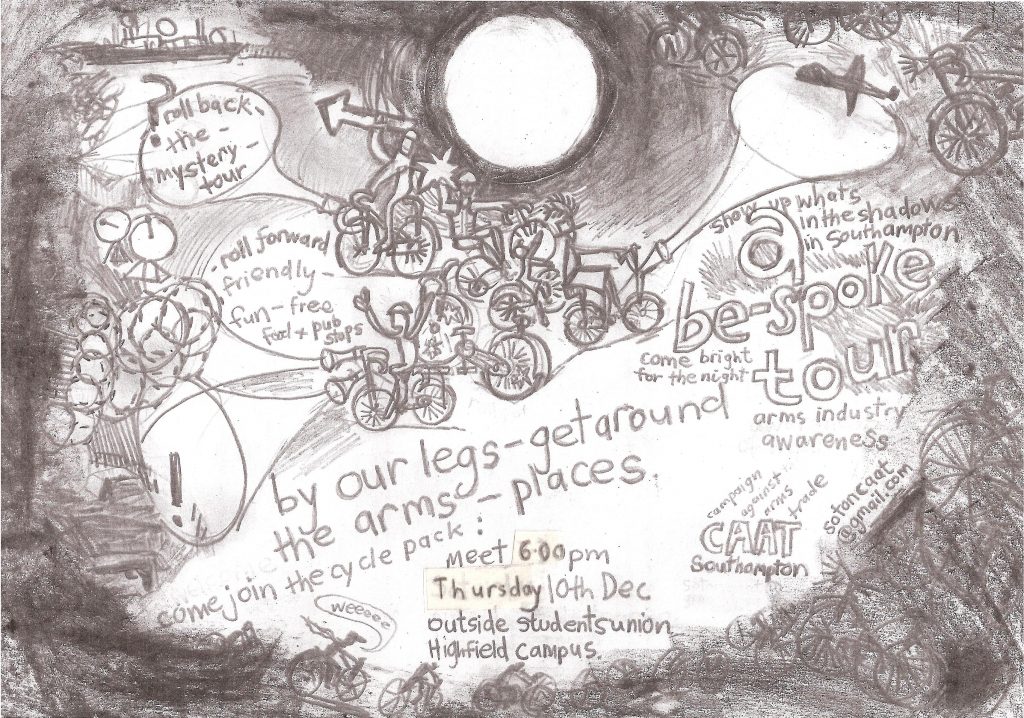 ?
roll back -
- the -
mystery -
tour
- roll forward
friendly -
fun - free
food + pub
stops
show up whats
in the shadows
in Southampton
a
be-spoke
tour
come bright
for the night
arms industry
awareness
!
by our legs - get around
the arms - places.
come join the cycle pack :
meet 6.00pm
Thursday 10th Dec
outside students union
Highfield campus.
weeeee
campaign
against
arms
trade
CAAT
Southampton
sotoncaat
@gmail.com